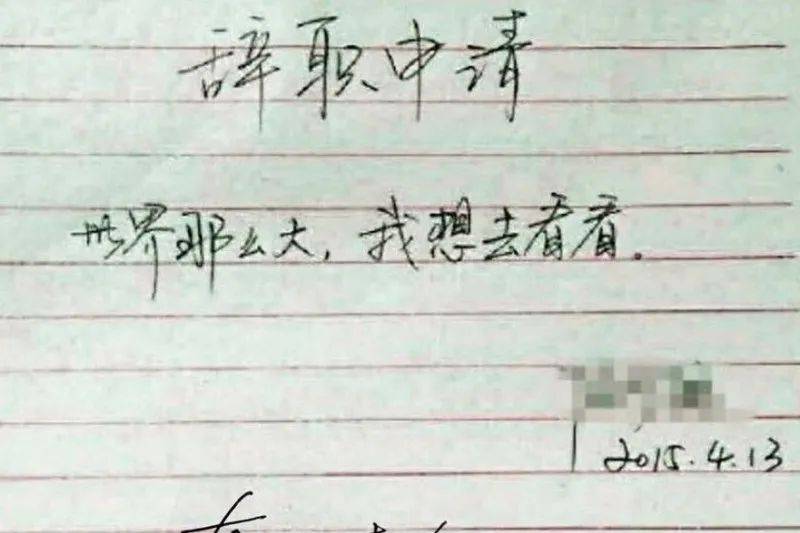 辞职申请
世界那么大，我想去看看.
2015.4.13